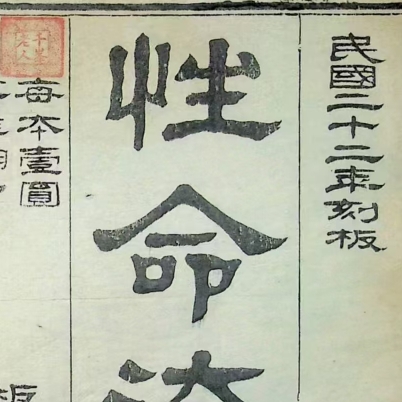 民國二十二年刻板
性命法
每本壹圓